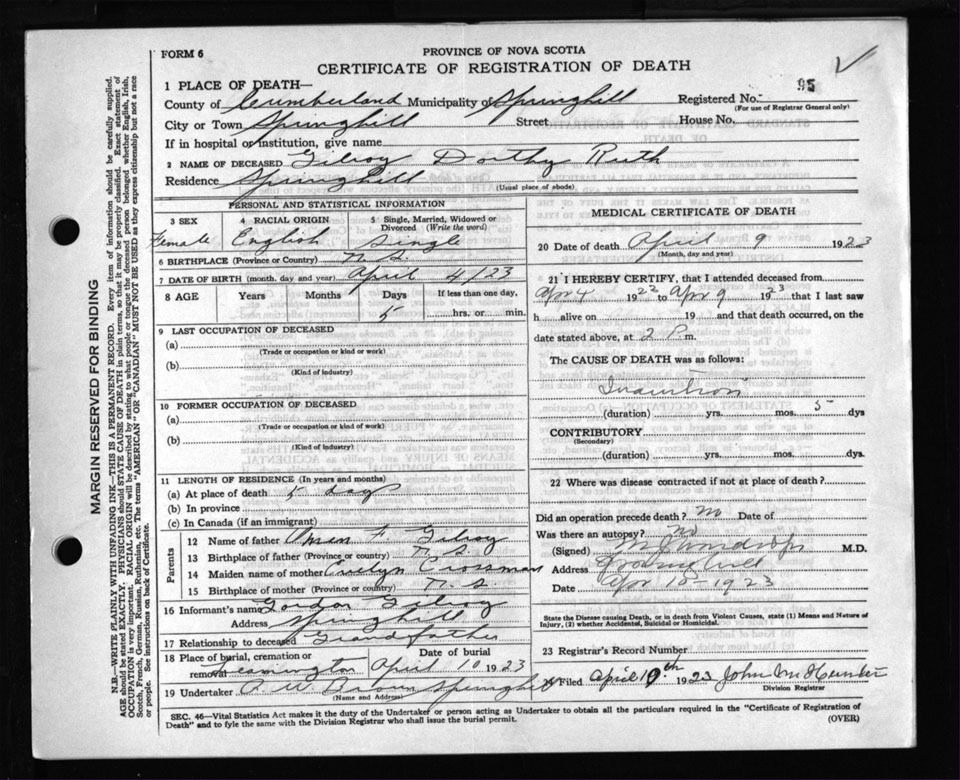 FORM 6
PROVINCE OF NOVA SCOTIA
CERTIFICATE OF REGISTRATION OF DEATH
1 PLACE OF DEATH—
County of Cumberland Municipality of Springhill Registered No. 95
(For use of Registrar General only)
City or Town Springhill Street House No.
If in hospital or institution, give name
2 NAME OF DECEASED Gilroy Dorthy Ruth
Residence Springhill
(Usual place of abode)
PERSONAL AND STATISTICAL INFORMATION
3 SEX 4 RACIAL ORIGIN 5 Single, Married, Widowed or Divorced (Write the word)
Female English Single
6 BIRTHPLACE (Province or Country) N.S.
7 DATE OF BIRTH (month, day and year) April 4/23
8 AGE Years Months Days If less than one day,
5 hrs. or min.
9 LAST OCCUPATION OF DECEASED
(a)
(Trade or occupation or kind or work)
(b)
(Kind of industry)
10 FORMER OCCUPATION OF DECEASED
(a)
(Trade or occupation or kind of work)
(b)
(Kind of industry)
11 LENGTH OF RESIDENCE (In years and months)
(a) At place of death 5 days
(b) In province
(c) In Canada (if an immigrant)
Parents
12 Name of father F Gilroy
13 Birthplace of father (Province or country) N.S.
14 Maiden name of mother Evelyn Crossman
15 Birthplace of mother (Province or country) N.S.
16 Informant's name Gordon Gilroy
Address Springhill
17 Relationship to deceased Grandfather
18 Place of burial, cremation or removal Leamington Date of burial April 10 1923
19 Undertaker A. W. Brown Springhill
(Name and Address)
MEDICAL CERTIFICATE OF DEATH
20 Date of death April 9 1923
(Month, day and year)
21 I HEREBY CERTIFY, that I attended deceased from
Apr 4 1922 to Apr 9 1923 that I last saw
h alive on 19 and that death occurred, on the
date stated above, at 2 P m.
The CAUSE OF DEATH was as follows:
Inanition
(duration) yrs. mos. 5 dys
CONTRIBUTORY
(Secondary)
(duration) yrs. mos. dys.
22 Where was disease contracted if not at place of death?
Did an operation precede death? no Date of
Was there an autopsy? no
(Signed) M.D.
Address Springhill
Date Apr 10-1923
State the Disease causing Death, or in death from Violent Causes, state (1) Means and Nature of Injury, (2) whether Accidental, Suicidal or Homicidal.
23 Registrar's Record Number
Filed April 10th 1923 John M Hunter
Division Registrar
SEC. 46—Vital Statistics Act makes it the duty of the Undertaker or person acting as Undertaker to obtain all the particulars required in the "Certificate of Registration of
Death" and to fyle the same with the Division Registrar who shall issue the burial permit.
(OVER)
MARGIN RESERVED FOR BINDING
N.B.—WRITE PLAINLY WITH UNFADING INK—THIS IS A PERMANENT RECORD. Every item of information should be carefully supplied.
AGE should be stated EXACTLY. PHYSICIANS should STATE CAUSE OF DEATH in plain terms, so that it may be properly classified. Exact statement of
OCCUPATION is very important. RACIAL ORIGIN will be described by stating to what people or tongue the deceased person belonged whether English, Irish,
Scotch, French, German, Russian, Ruthenian, etc. The terms "AMERICAN" OR "CANADIAN" MUST NOT BE USED as they express citizenship but not a race
or people. See instructions on back of Certificate.